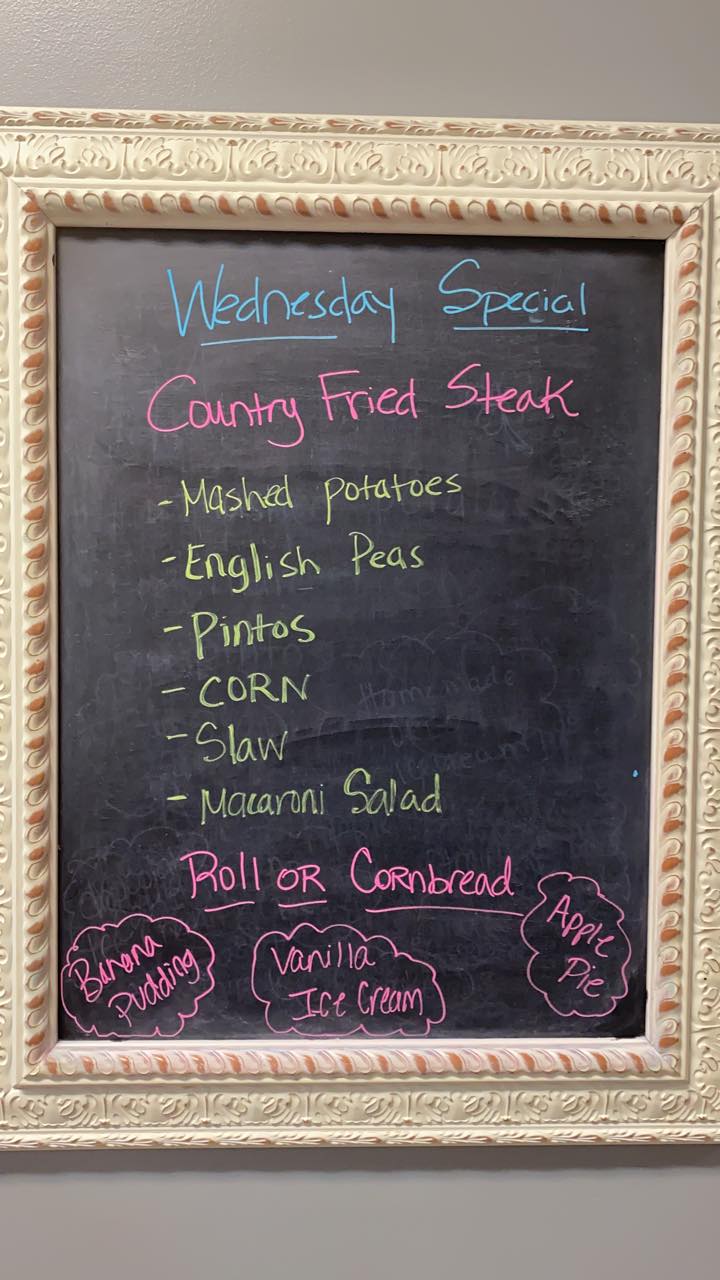 Wednesday Special
Country Fried Steak
- Mashed potatoes
- English Peas
- Pintos
- CORN
- Slaw
- Macaroni Salad
Roll OR Cornbread
Banana
Pudding
Vanilla
Ice Cream
Apple
Pie
Homemade